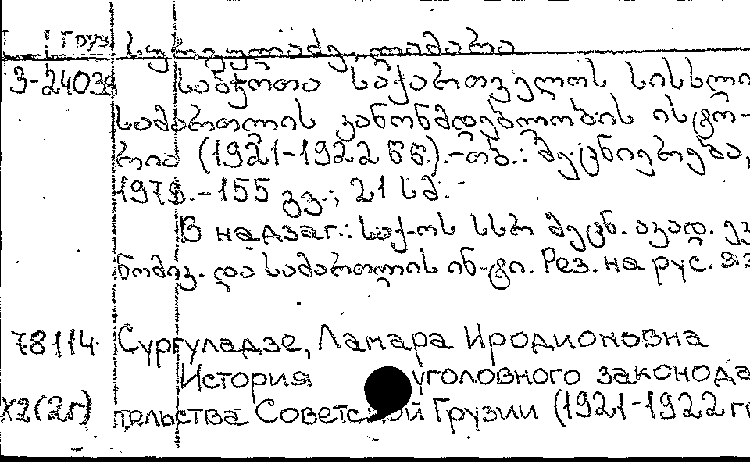 Груз
სურგულაძე, ლამარა
3-24038 საბჭოთა საქართველოს სისხლი
სამართლის კანონმდებლობის ისტო-
რია (1921-1922 წწ.).-თბ.: მეცნიერება,
1979.-155 გვ.; 21 სმ.
В надзаг.: საქ-ოს სსრ მეცნ. აკად. ეკ
ნომიკ. და სამართლის ინ-ტი. Рез. на рус. яз
78114 Сургуладзе, Ламара Иродионовна
История уголовного законода
Х2(2г) тельства Советской Грузии (1921-1922 гг